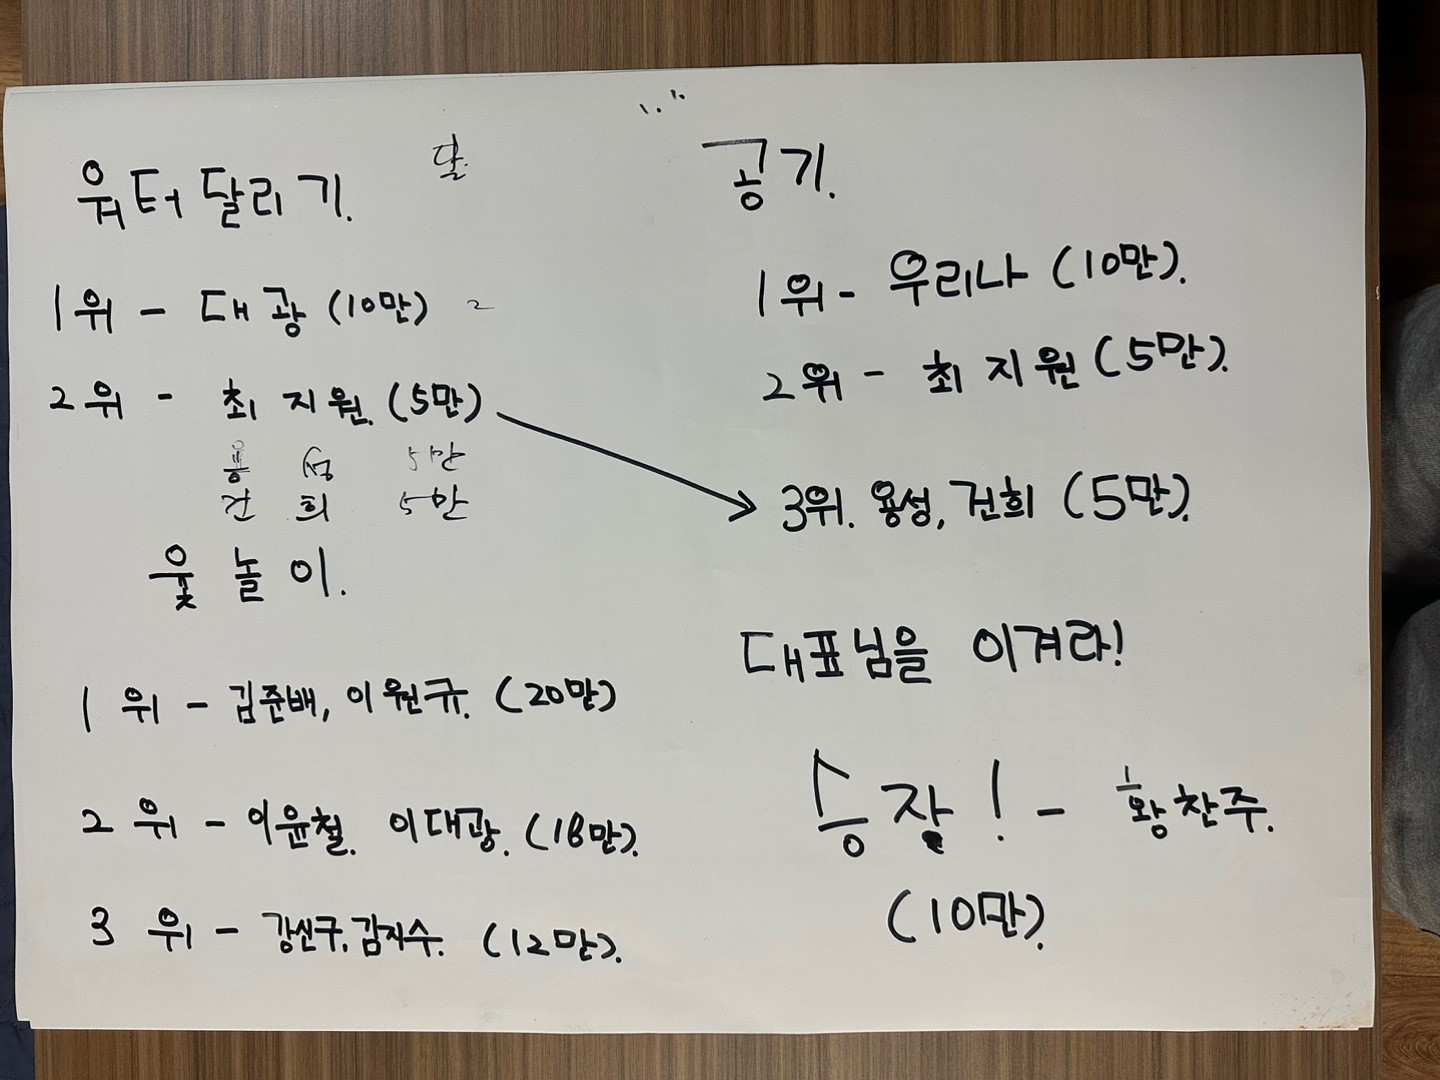 워터달리기.
달.
1위 - 대광 (10만)
2위 - 최지원. (5만)
용성 5만
건희 5만
윷놀이.
1위 - 김준배, 이원규. (20만)
2위 - 이윤철. 이대광. (18만).
3위 - 강신구. 김지수. (12만).
공기.
1위 - 우리나 (10만).
2위 - 최지원 (5만).
3위. 용성, 건희 (5만).
대표님을 이겨라!
승장! - 황찬주.
(10만).